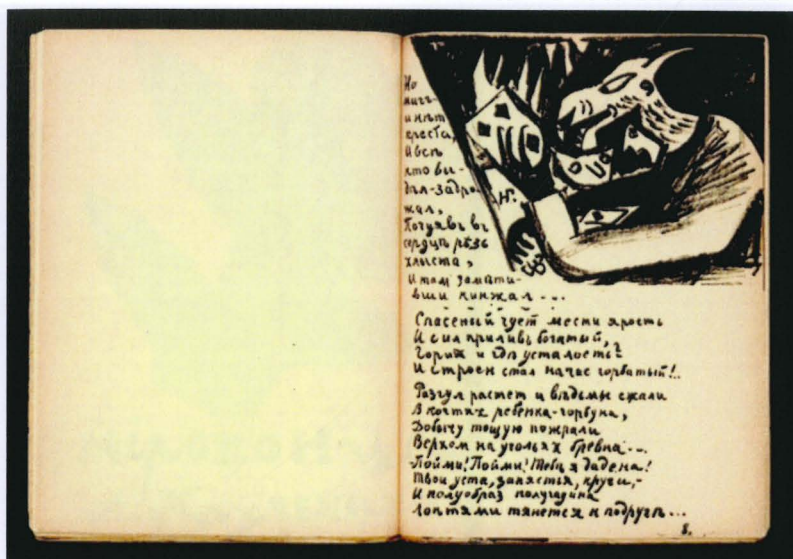 Но
мигъ-
и нѣт
креста,
И всѣ
кто ви-
дѣл-задро-
жал,
Почуявъ въ
сердцѣ рѣзь
хлыста,
И там замѣти-
вши кинжал...
Спасеный чует мести ярость
И сил приливъ богатый,
Горит и гдѣ усталость?
И строен стал на час горбатый!..
Разгул растет и вѣдьмы сжали
В когтях ребенка-горбуна,
Добычу тощую пожрали
Верхом на угольях бревна...
-Пойми! Пойми! Тебѣ я дадена!
Твои уста, запястья, круги,-
И полуобраз полугадина
Локтями тянется к подругѣ...
8.